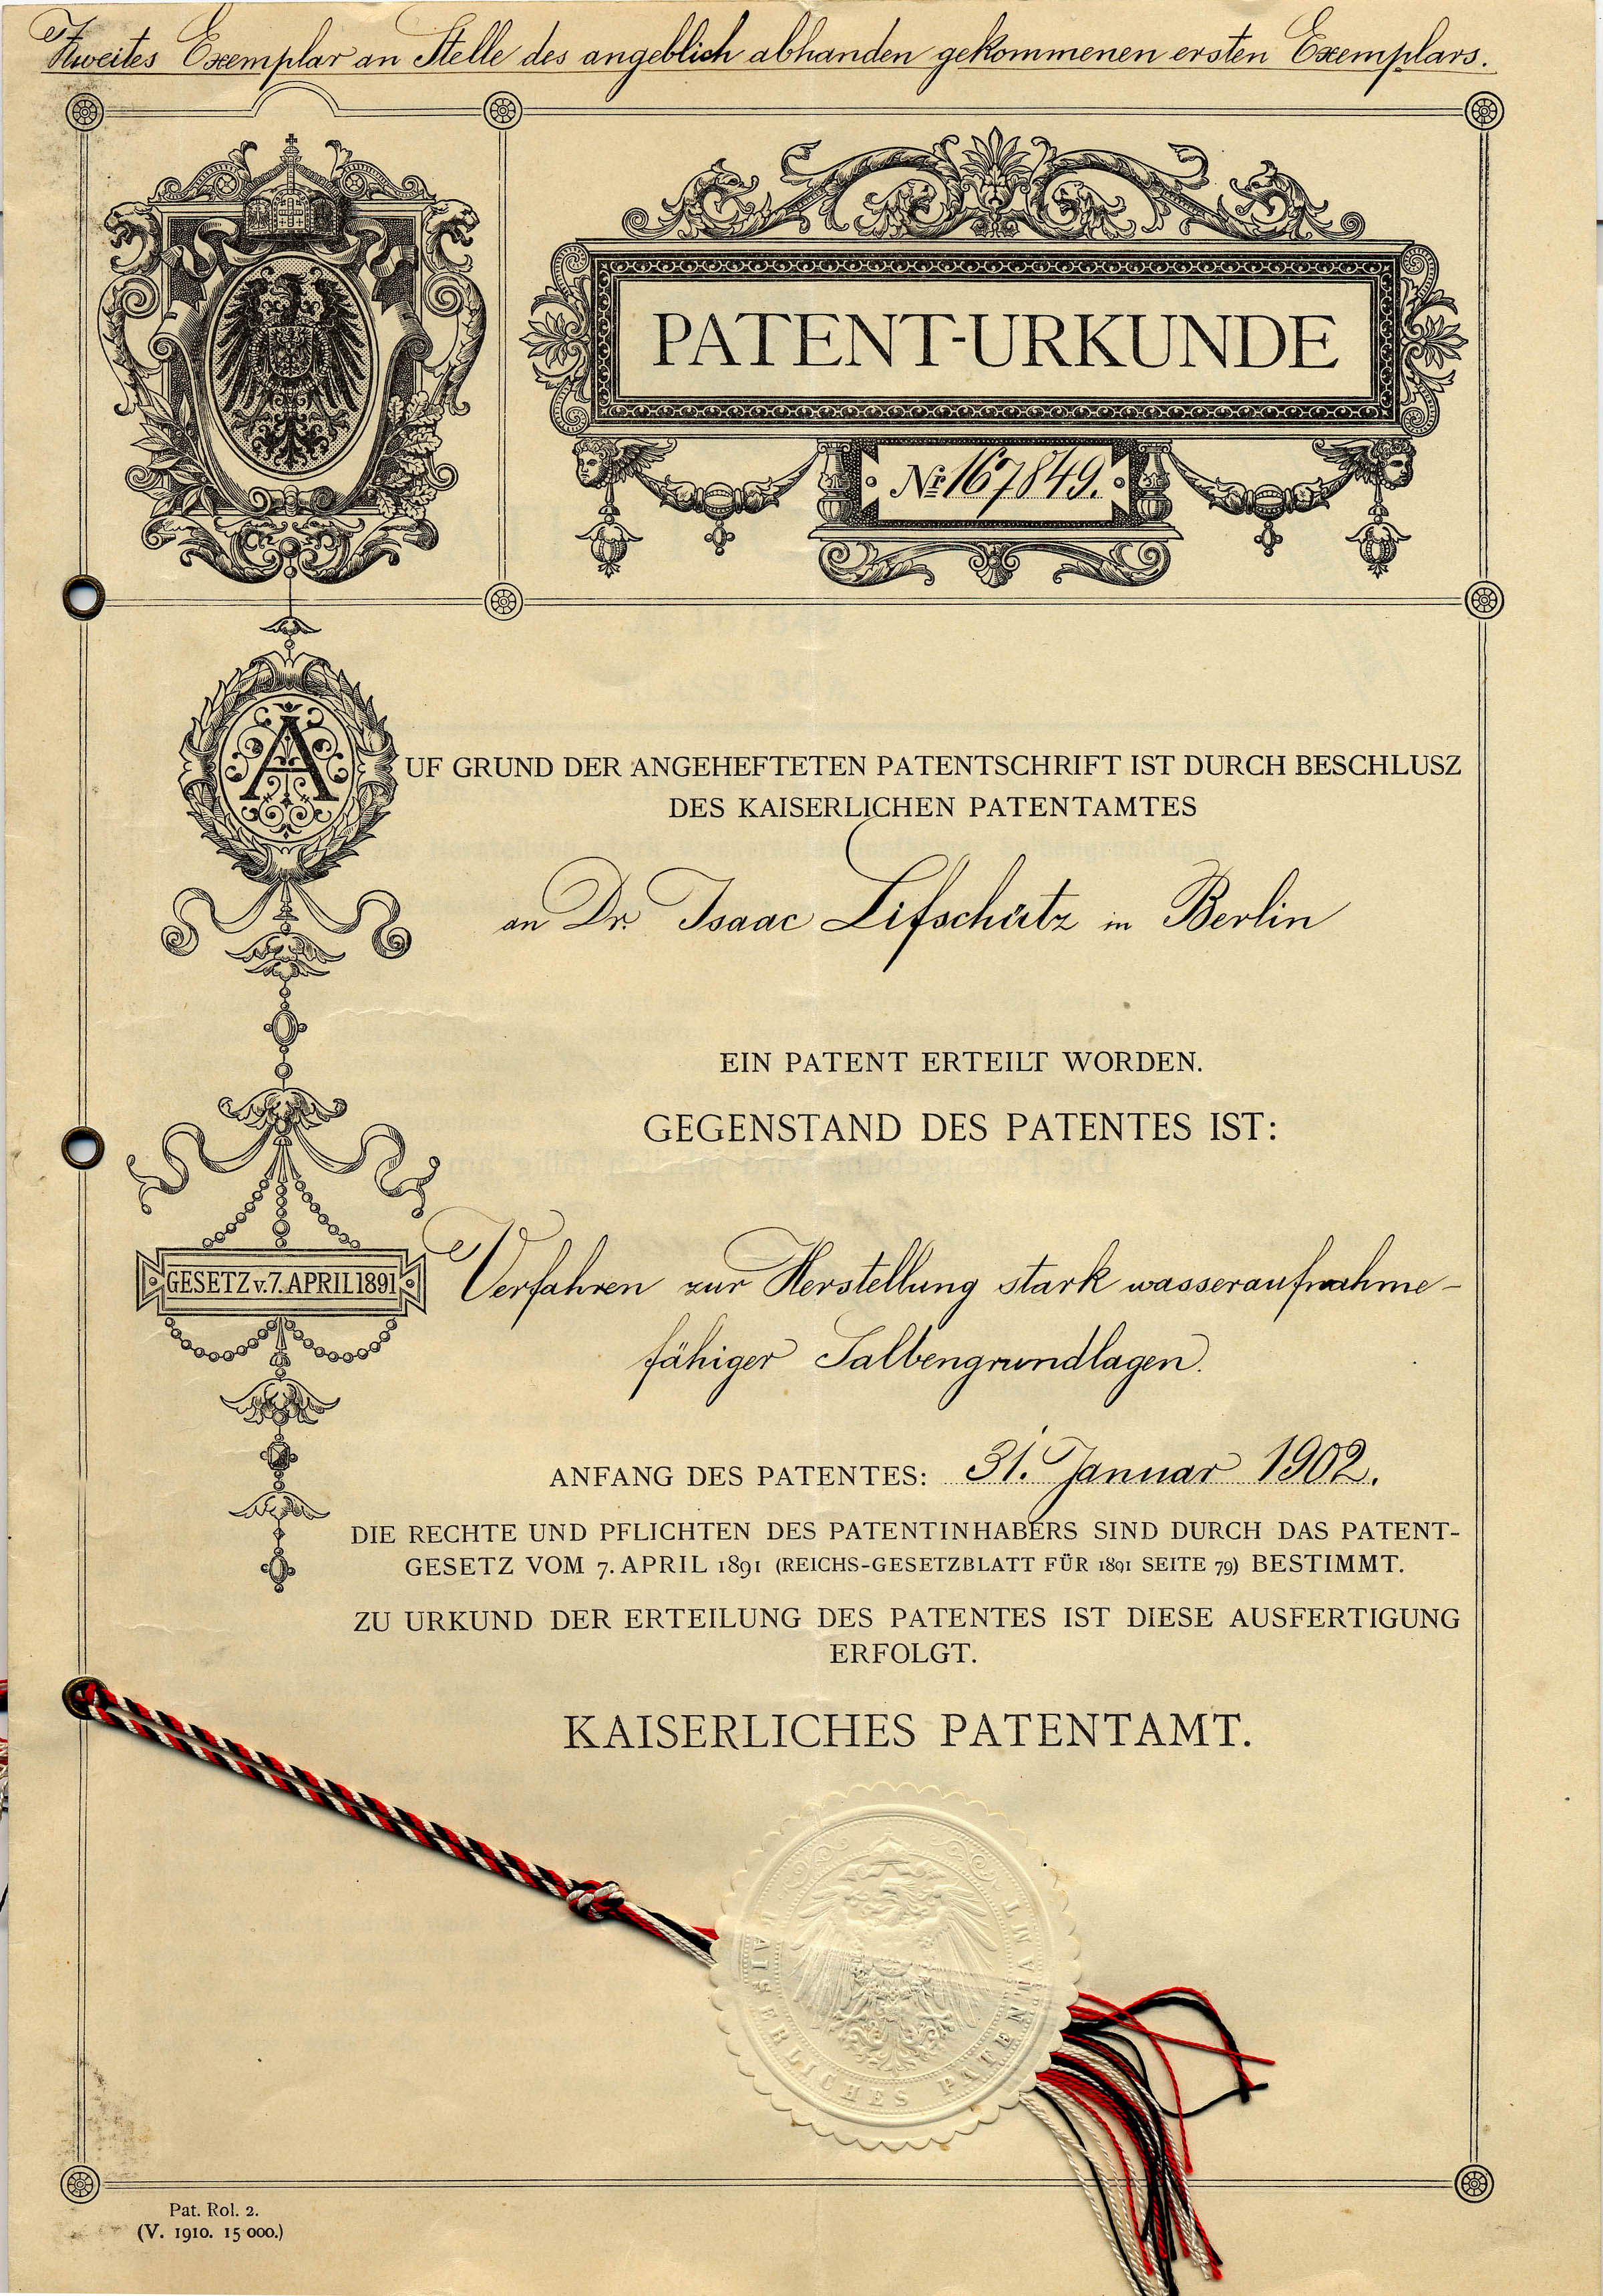 Zweites Exemplar an Stelle des angeblich abhanden gekommenen ersten Exemplars.
PATENT-URKUNDE
Nr. 167849.
AUF GRUND DER ANGEHEFTETEN PATENTSCHRIFT IST DURCH BESCHLUSZ
DES KAISERLICHEN PATENTAMTES
an Dr. Isaac Lifschütz in Berlin
EIN PATENT ERTEILT WORDEN.
GEGENSTAND DES PATENTES IST:
GESETZ v. 7. APRIL 1891
Verfahren zur Herstellung stark wasseraufnahme-
fähiger Salbengrundlagen.
ANFANG DES PATENTES: 31. Januar 1902.
DIE RECHTE UND PFLICHTEN DES PATENTINHABERS SIND DURCH DAS PATENT-
GESETZ VOM 7. APRIL 1891 (REICHS-GESETZBLATT FÜR 1891 SEITE 79) BESTIMMT.
ZU URKUND DER ERTEILUNG DES PATENTES IST DIESE AUSFERTIGUNG
ERFOLGT.
KAISERLICHES PATENTAMT.
KAISERLICHES PATENTAMT
Pat. Rol. 2.
(V. 1910. 15 000.)